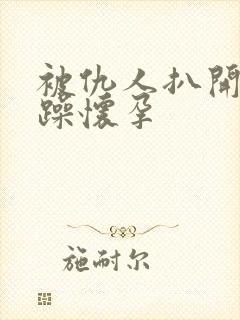 被仇人扒開
躁懷孕
施耐尔